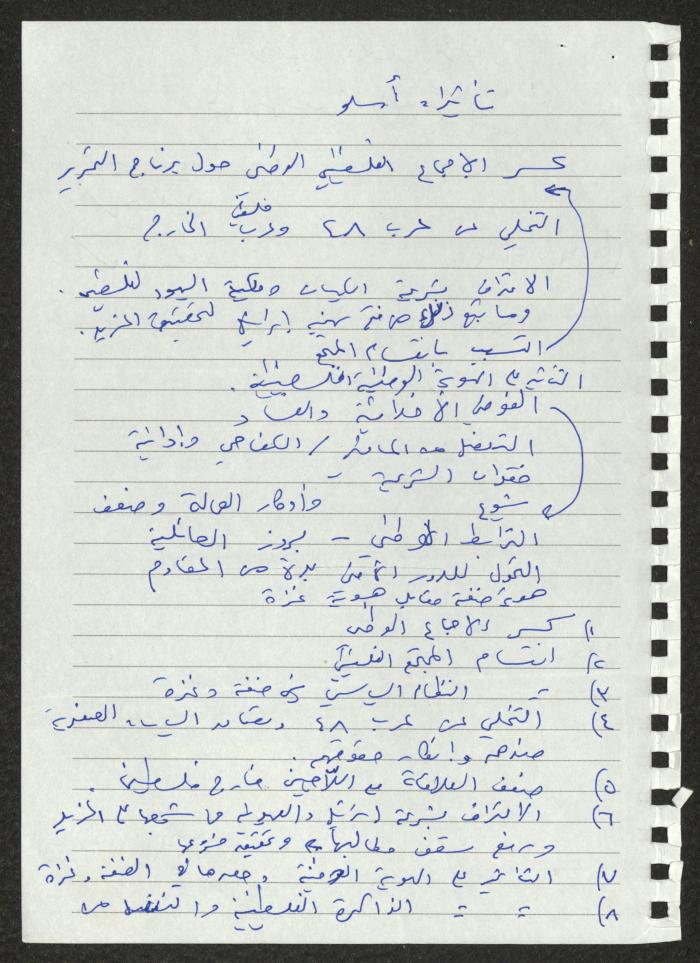 تأثيرات أوسلو
كسر الاجماع الفلسطيني الوطني حول برنامج التحرير
التخلي عن عرب ٤٨ وعرب فلسطين الخارج
الاعتراف بشرعية الكيان وملكية اليهود لفلسطين.
وما يتبع ذلك من إسرائيل لتحقيق المزيد.
التسبب بانقسام المجتمع
التأثير على الهوية الوطنية الفلسطينية.
الفوضى الأخلاقية والفساد
التنصل من الماضي / الكفاحي وإدانية
فقدان الشرعية
شيوع وأدوار العمالة وضعف
الترابط الوطني - بروز العائلية
التحول للدور الأمني بدلا من المقاوم
هوية ضفة مقابل هوية غزة
١) كسر الاجماع الوطني
٢) انقسام المجتمع الفلسطيني
٣) = النظام السياسي في ضفة وغزة
٤) التخلي عن عرب ٤٨ الصهيونية
ضدهم وإنكار حقوقهم.
٥) ضعف العلاقة مع اللاجئين خارج فلسطين.
٦) الاعتراف بشرعية إسرائيل والصهيونية ما شجعها على المزيد
ورفع سقف مطالبها وتحقيق مشروعها
٧) التأثير على الهوية الوطنية وحصرها في الضفة وغزة
٨) = = الذاكرة الفلسطينية والتنصل من